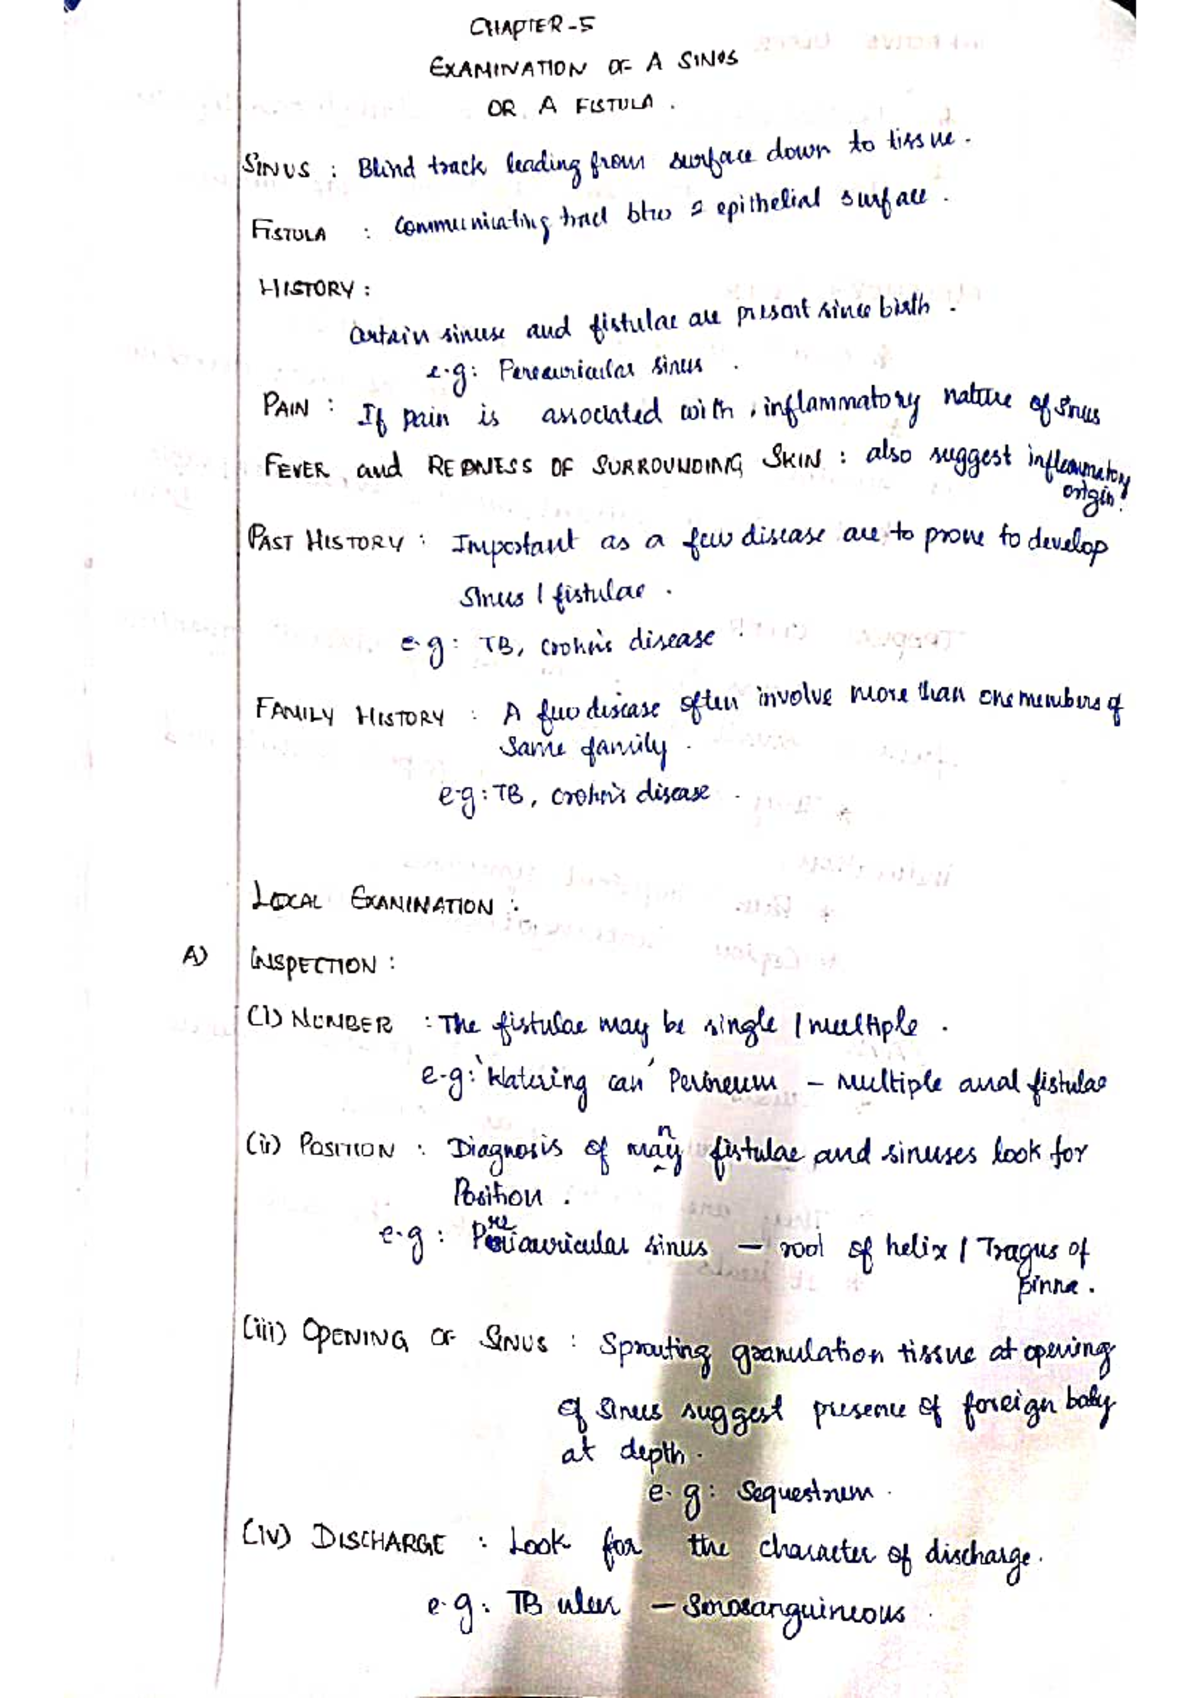 CHAPTER-5
EXAMINATION OF A SINUS
OR A FISTULA.
SINUS : Blind track leading from surface down to tissue.
FISTULA : Communicating tract btw 2 epithelial surface.
HISTORY :
Certain sinuse and fistulae are present since birth.
e.g: Pereauricular sinus.
PAIN : If pain is associated with, inflammatory nature of sinus
FEVER and REDNESS OF SURROUNDING SKIN : also suggest inflammatory
origin!
PAST HISTORY : Important as a few disease are to prone to develop
sinus / fistulae.
e.g: TB, crohn's disease.
FAMILY HISTORY : A few disease often involve more than one members of
same family.
e.g: TB, crohn's disease.
LOCAL EXAMINATION :
A) INSPECTION :
(i) NUMBER : The fistulae may be single / multiple.
e.g: 'Watering can' Perineum - multiple anal fistulae
(ii) POSITION : Diagnosis of many fistulae and sinuses look for
Position.
e.g: Preauricular sinus - root of helix / Tragus of
pinna.
(iii) OPENING OF SINUS : Sprouting granulation tissue at opening
of sinus suggest presence of foreign body
at depth.
e.g: Sequestrum.
(iv) DISCHARGE : Look for the character of discharge.
e.g: TB ulcer - Serosanguineous.